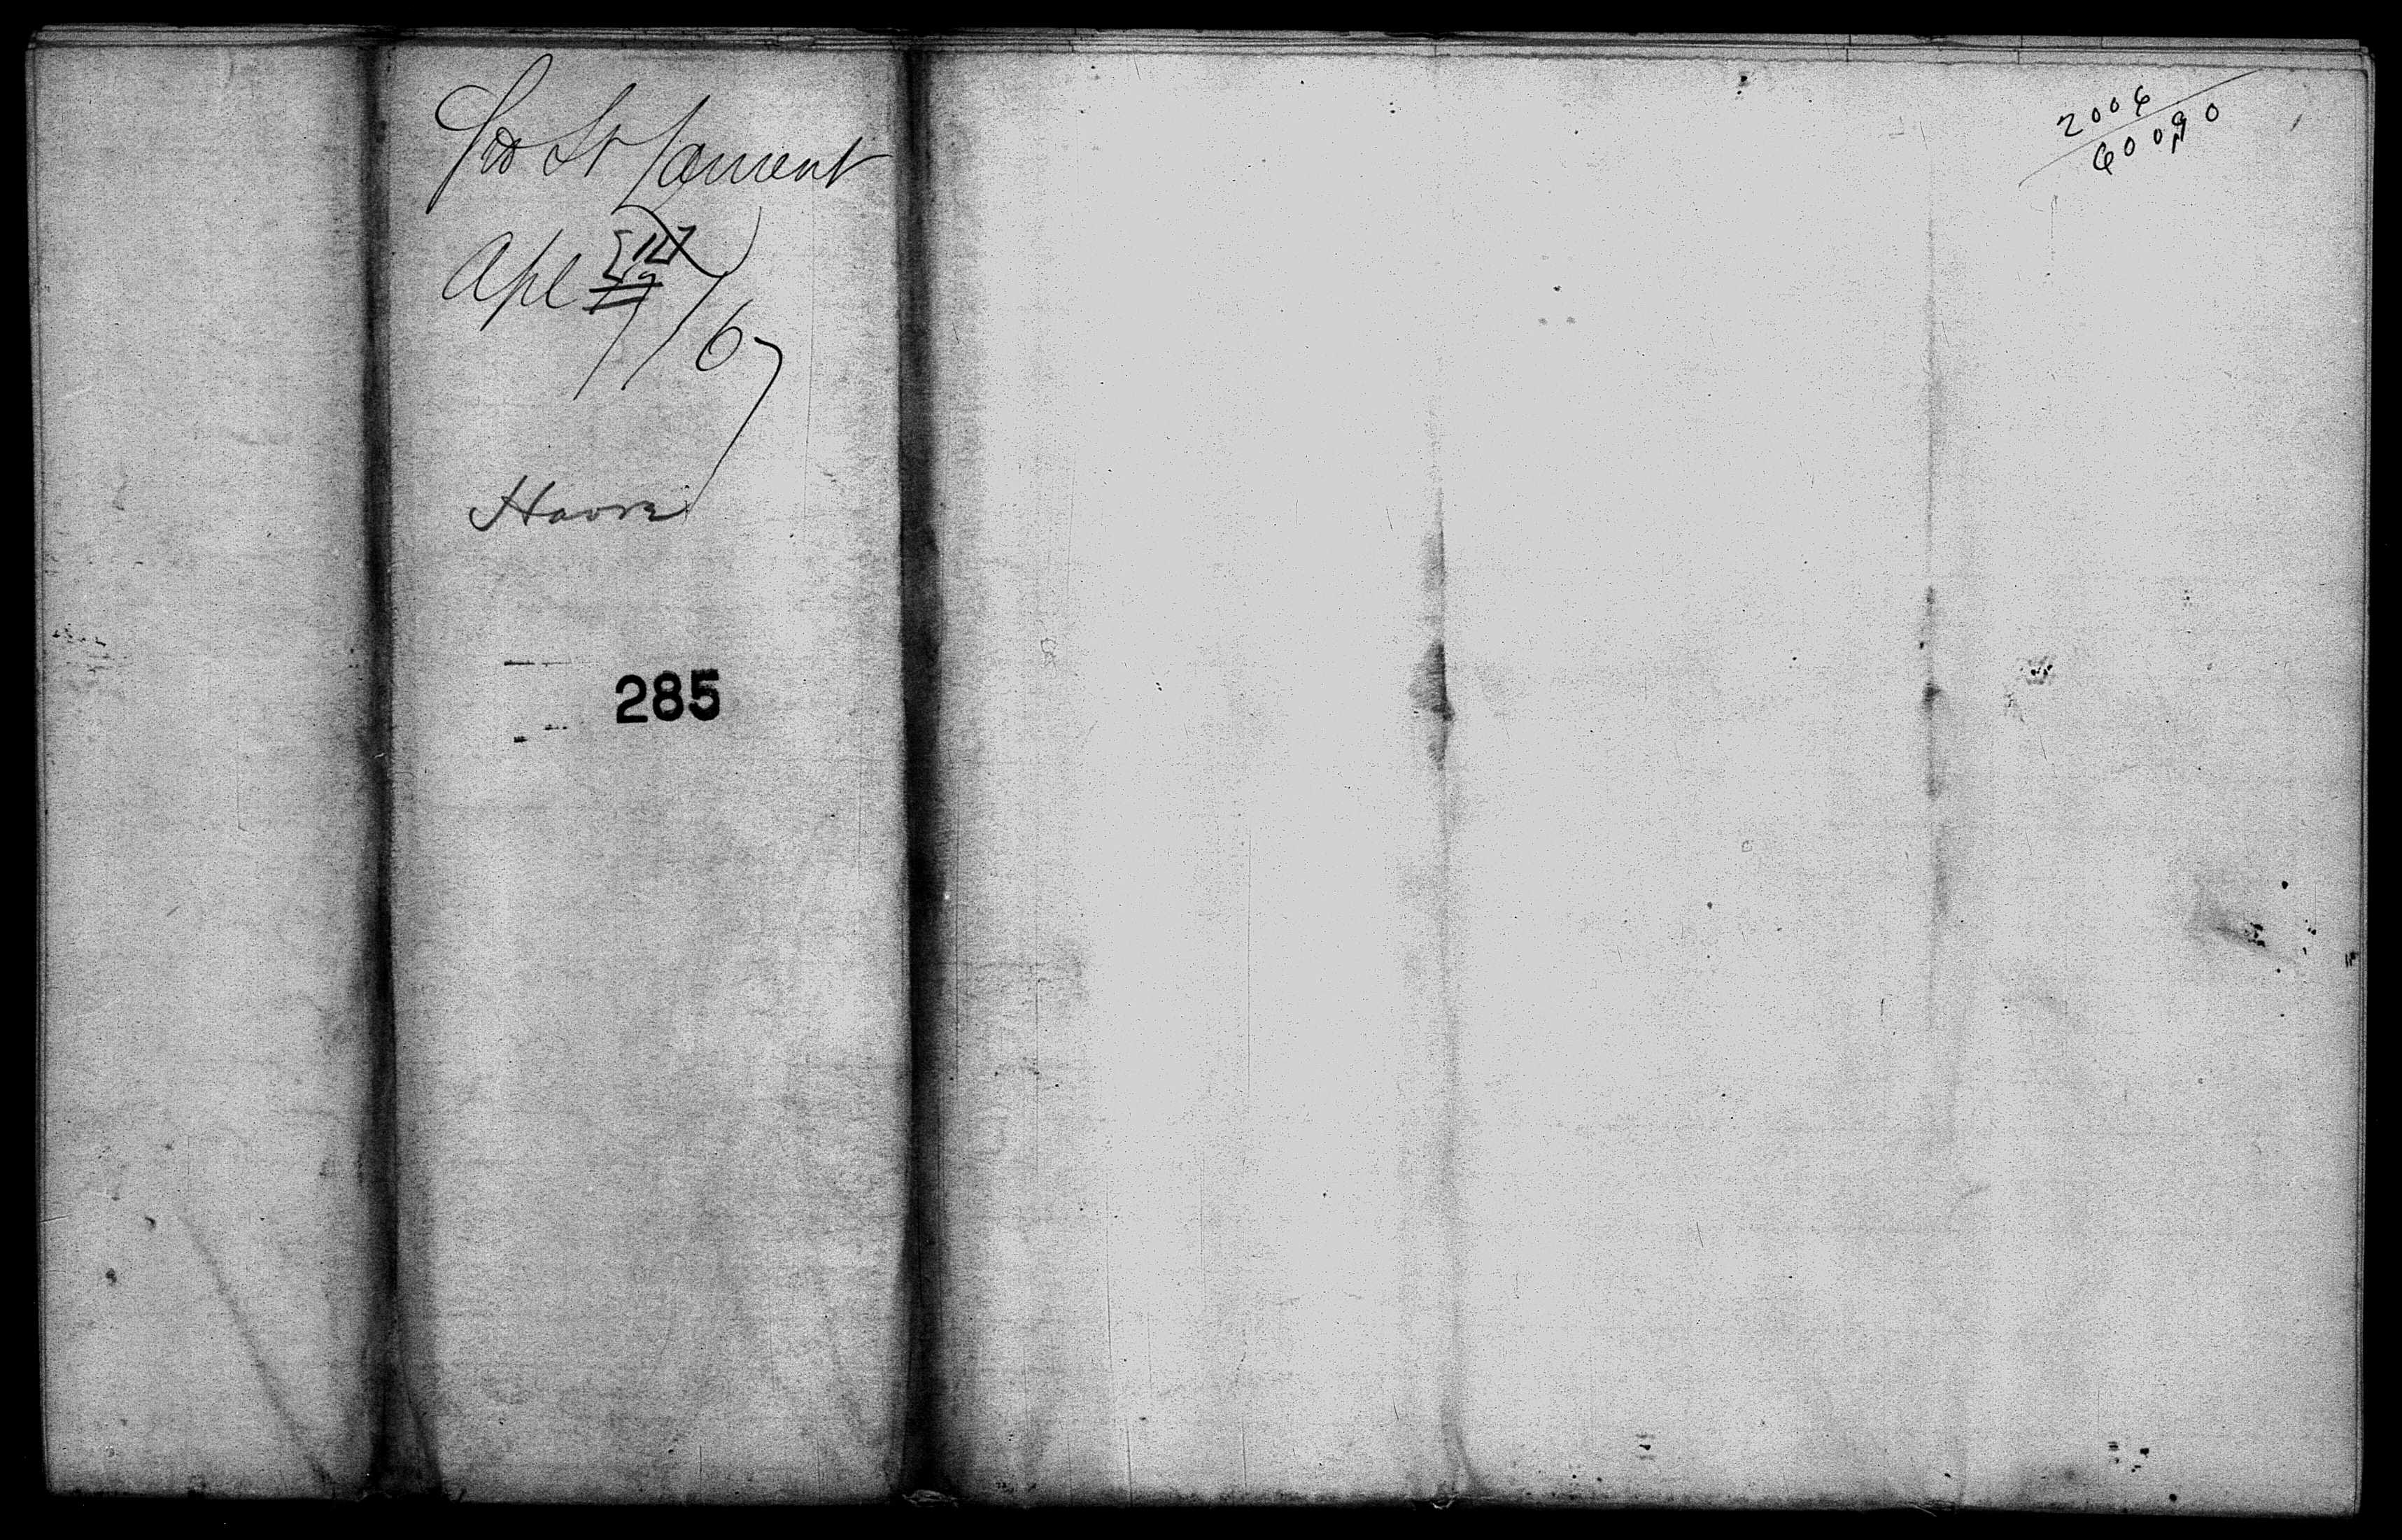 Geo St Laurent
Apl 17/67
Havre
285
2006
60090